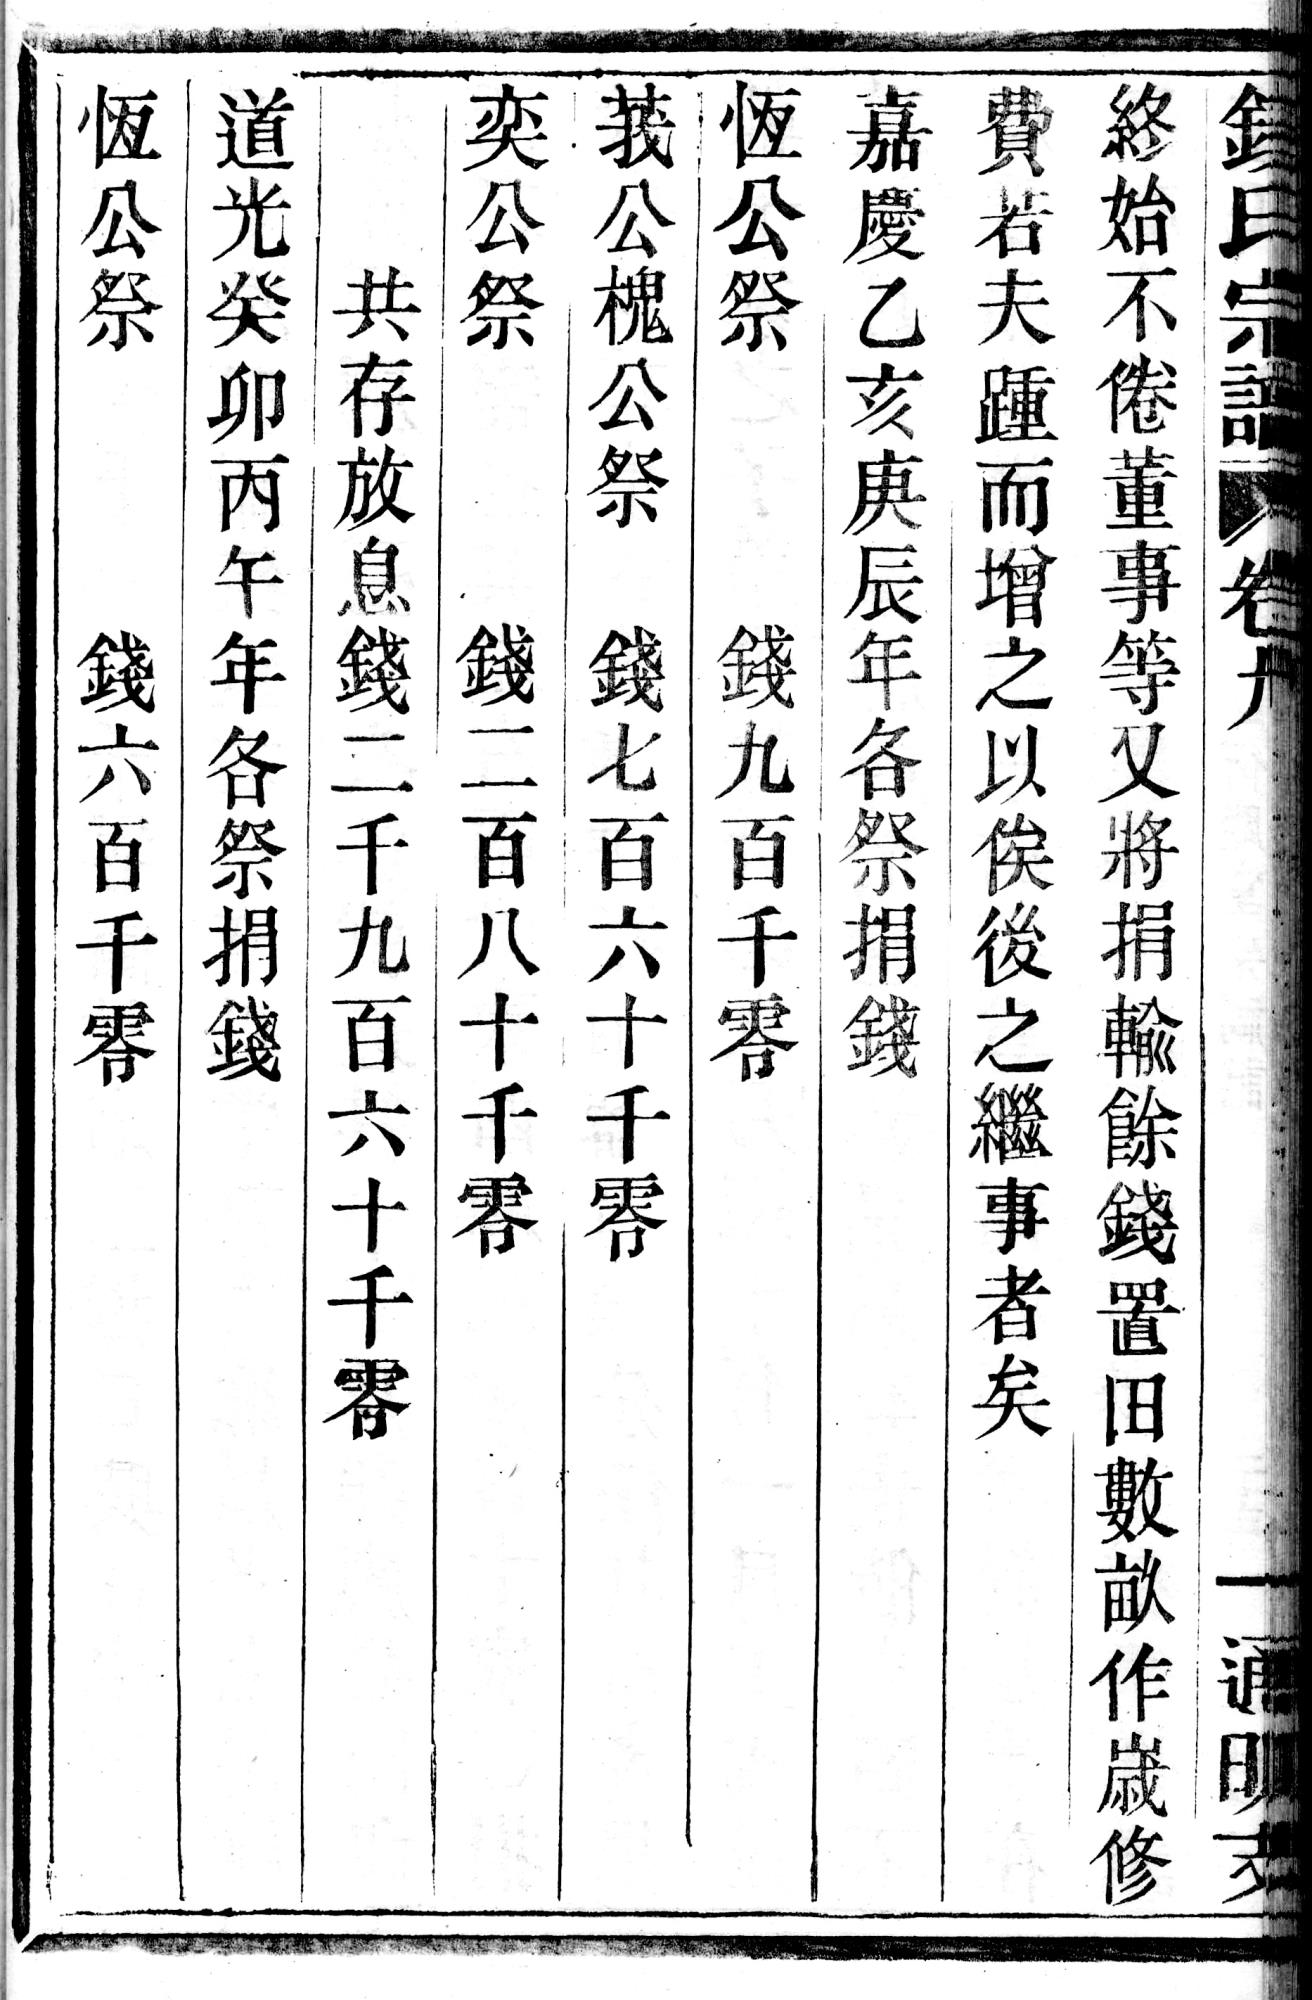 氏宗譜 卷九 一 通明支
終始不倦董事等又將捐輸餘錢置田數畝作歲修
費若夫踵而增之以俟後之繼事者矣
嘉慶乙亥庚辰年各祭捐錢
恆公祭 錢九百千零
莪公槐公祭 錢七百六十千零
奕公祭 錢二百八十千零
共存放息錢二千九百六十千零
道光癸卯丙午年各祭捐錢
恆公祭 錢六百千零